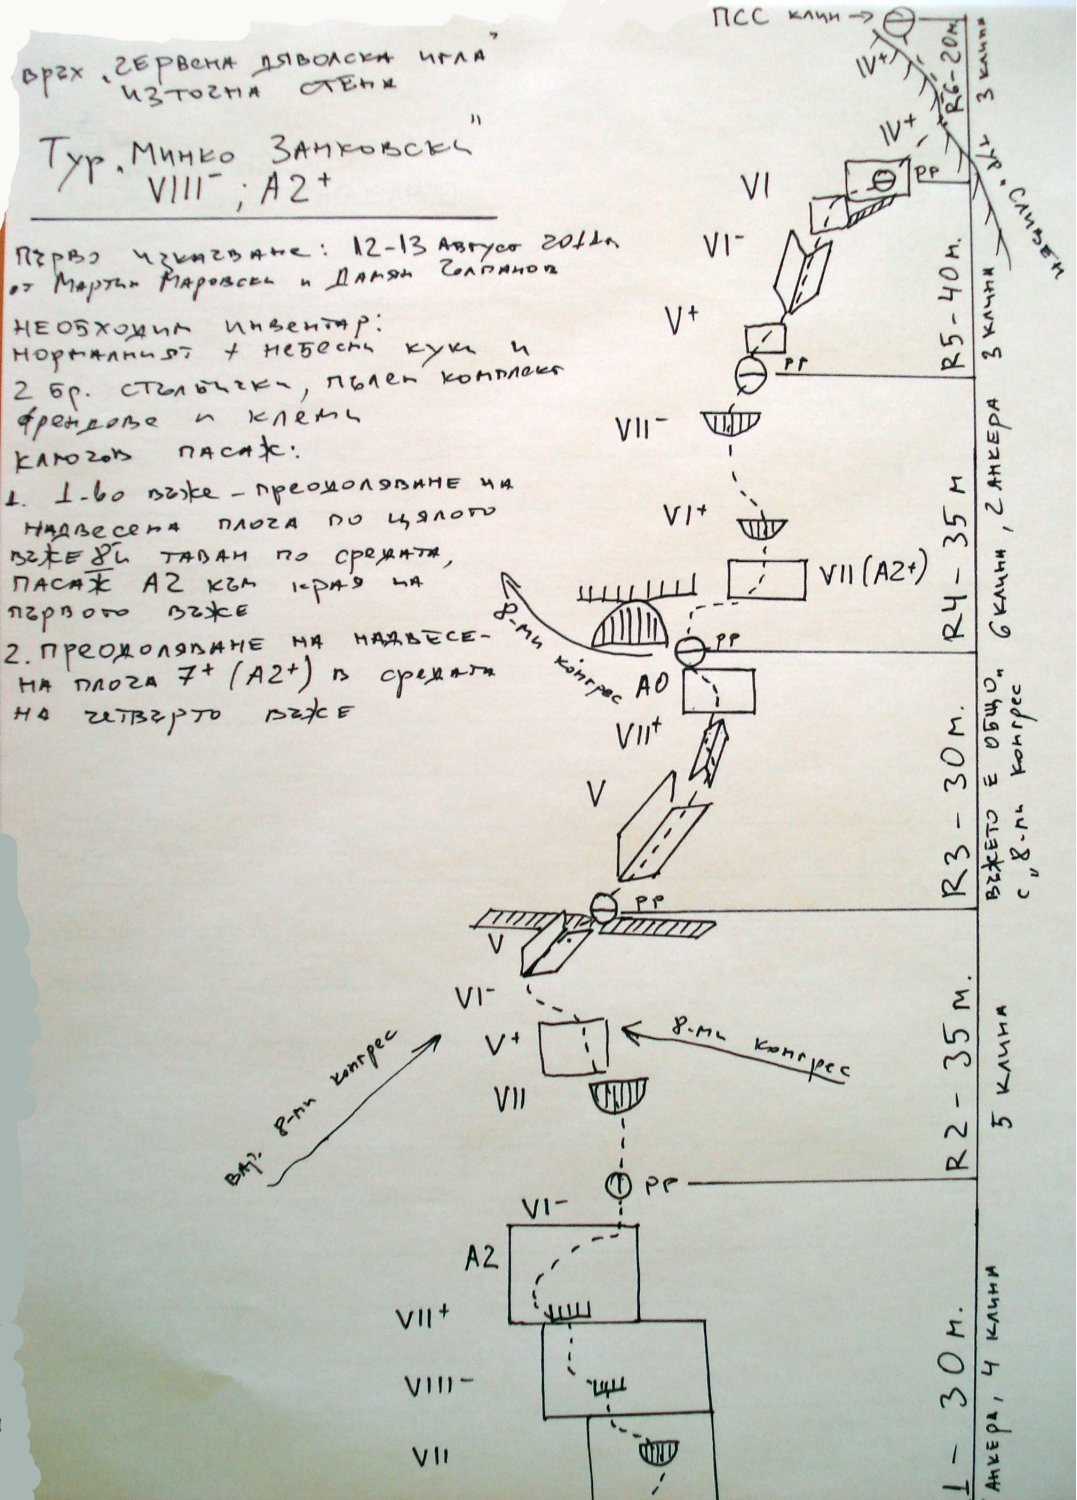 връх „Червена дяволска игла"
източна стена
Тур „Минко Занковски"
VIII⁻; A2⁺
Първо изкачване: 12-13 Август 2011г
от Мартин Маровски и Даман Чолпанов
НЕОБХОДИМ инвентар:
нормалният + небесни куки и
2 бр. стълбички, пълен комплект
френдове и клеми
ключов пасаж:
1. 1-во въже – преодоляване на
надвесена плоча по цялото
въже 8⁻ и таван по средата,
пасаж A2 към края на
първото въже
2. преодоляване на надвесе-
на плоча 7⁺ (A2⁺) в средата
на четвърто въже
ПСС клин →
IV⁺
R6 - 20 м.
3 клина
IV⁺
PP
VI
"Сливен
VI⁻
R5 - 40 м.
3 клина
V⁺
PP
VII⁻
VI⁺
VII (A2⁺)
R4 - 35 м
6 клина, 2 анкера
8-ми конгрес
PP
A0
VII⁺
V
R3 - 30 м.
въжето е общо
с „8-ми конгрес
PP
V
VI⁻
V⁺
8-ми конгрес
вар. 8-ми конгрес
VII
R2 - 35 м.
5 клина
PP
VI⁻
A2
VII⁺
VIII⁻
VII
1 - 30 м.
анкера, 4 клина